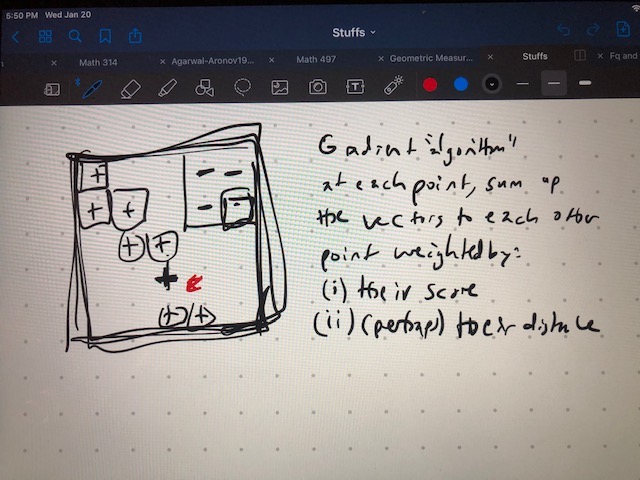 5:50 PM Wed Jan 20
Stuffs
Math 314
Agarwal-Aronov19...
Math 497
Geometric Measur...
Stuffs
Fq and
Gadient "algorithm"
at each point, sum up
the vectors to each other
point weighted by:
(i) their score
(ii) (perhaps) their distance
+ - -
+ + - -
+ +
+
+ / +